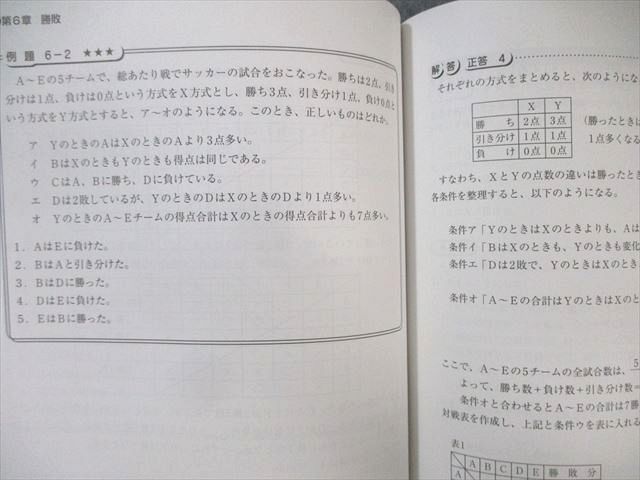 第6章 勝敗
例題 6-2 ★★★
A~Eの5チームで、総あたり戦でサッカーの試合をおこなった。勝ちは2点、引き
分けは1点、負けは0点という方式をX方式とし、勝ち3点、引き分け1点、負け0点と
いう方式をY方式とすると、ア~オのようになる。このとき、正しいものはどれか。
ア YのときのAはXのときのAより3点多い。
イ BはXのときもYのときも得点は同じである。
ウ CはA、Bに勝ち、Dに負けている。
エ Dは2敗しているが、YのときのDはXのときのDより1点多い。
オ YのときのA~Eチームの得点合計はXのときの得点合計よりも7点多い。
1. AはEに負けた。
2. BはAと引き分けた。
3. BはDに勝った。
4. DはEに負けた。
5. EはBに勝った。
解答 正答 4
それぞれの方式をまとめると、次のようにな
X Y
勝ち 2点 3点 (勝ったときは
引き分け 1点 1点 1点多くなる
負け 0点 0点
すなわち、XとYの点数の違いは勝ったとき
各条件を整理すると、以下のようになる。
条件ア「YのときはXのときよりも、Aは
条件イ「BはXのときも、Yのときも変化
条件エ「Dは2敗で、YのときはXのとき
条件オ「A~Eの合計はYのときはXのと
ここで、A~Eの5チームの全試合数は、5
よって、勝ち数+負け数+引き分け数=
条件オと合わせるとA~Eの合計は7勝
対戦表を作成し、上記と条件ウを表に入れる
表1
A B C D E 勝 敗 分
A